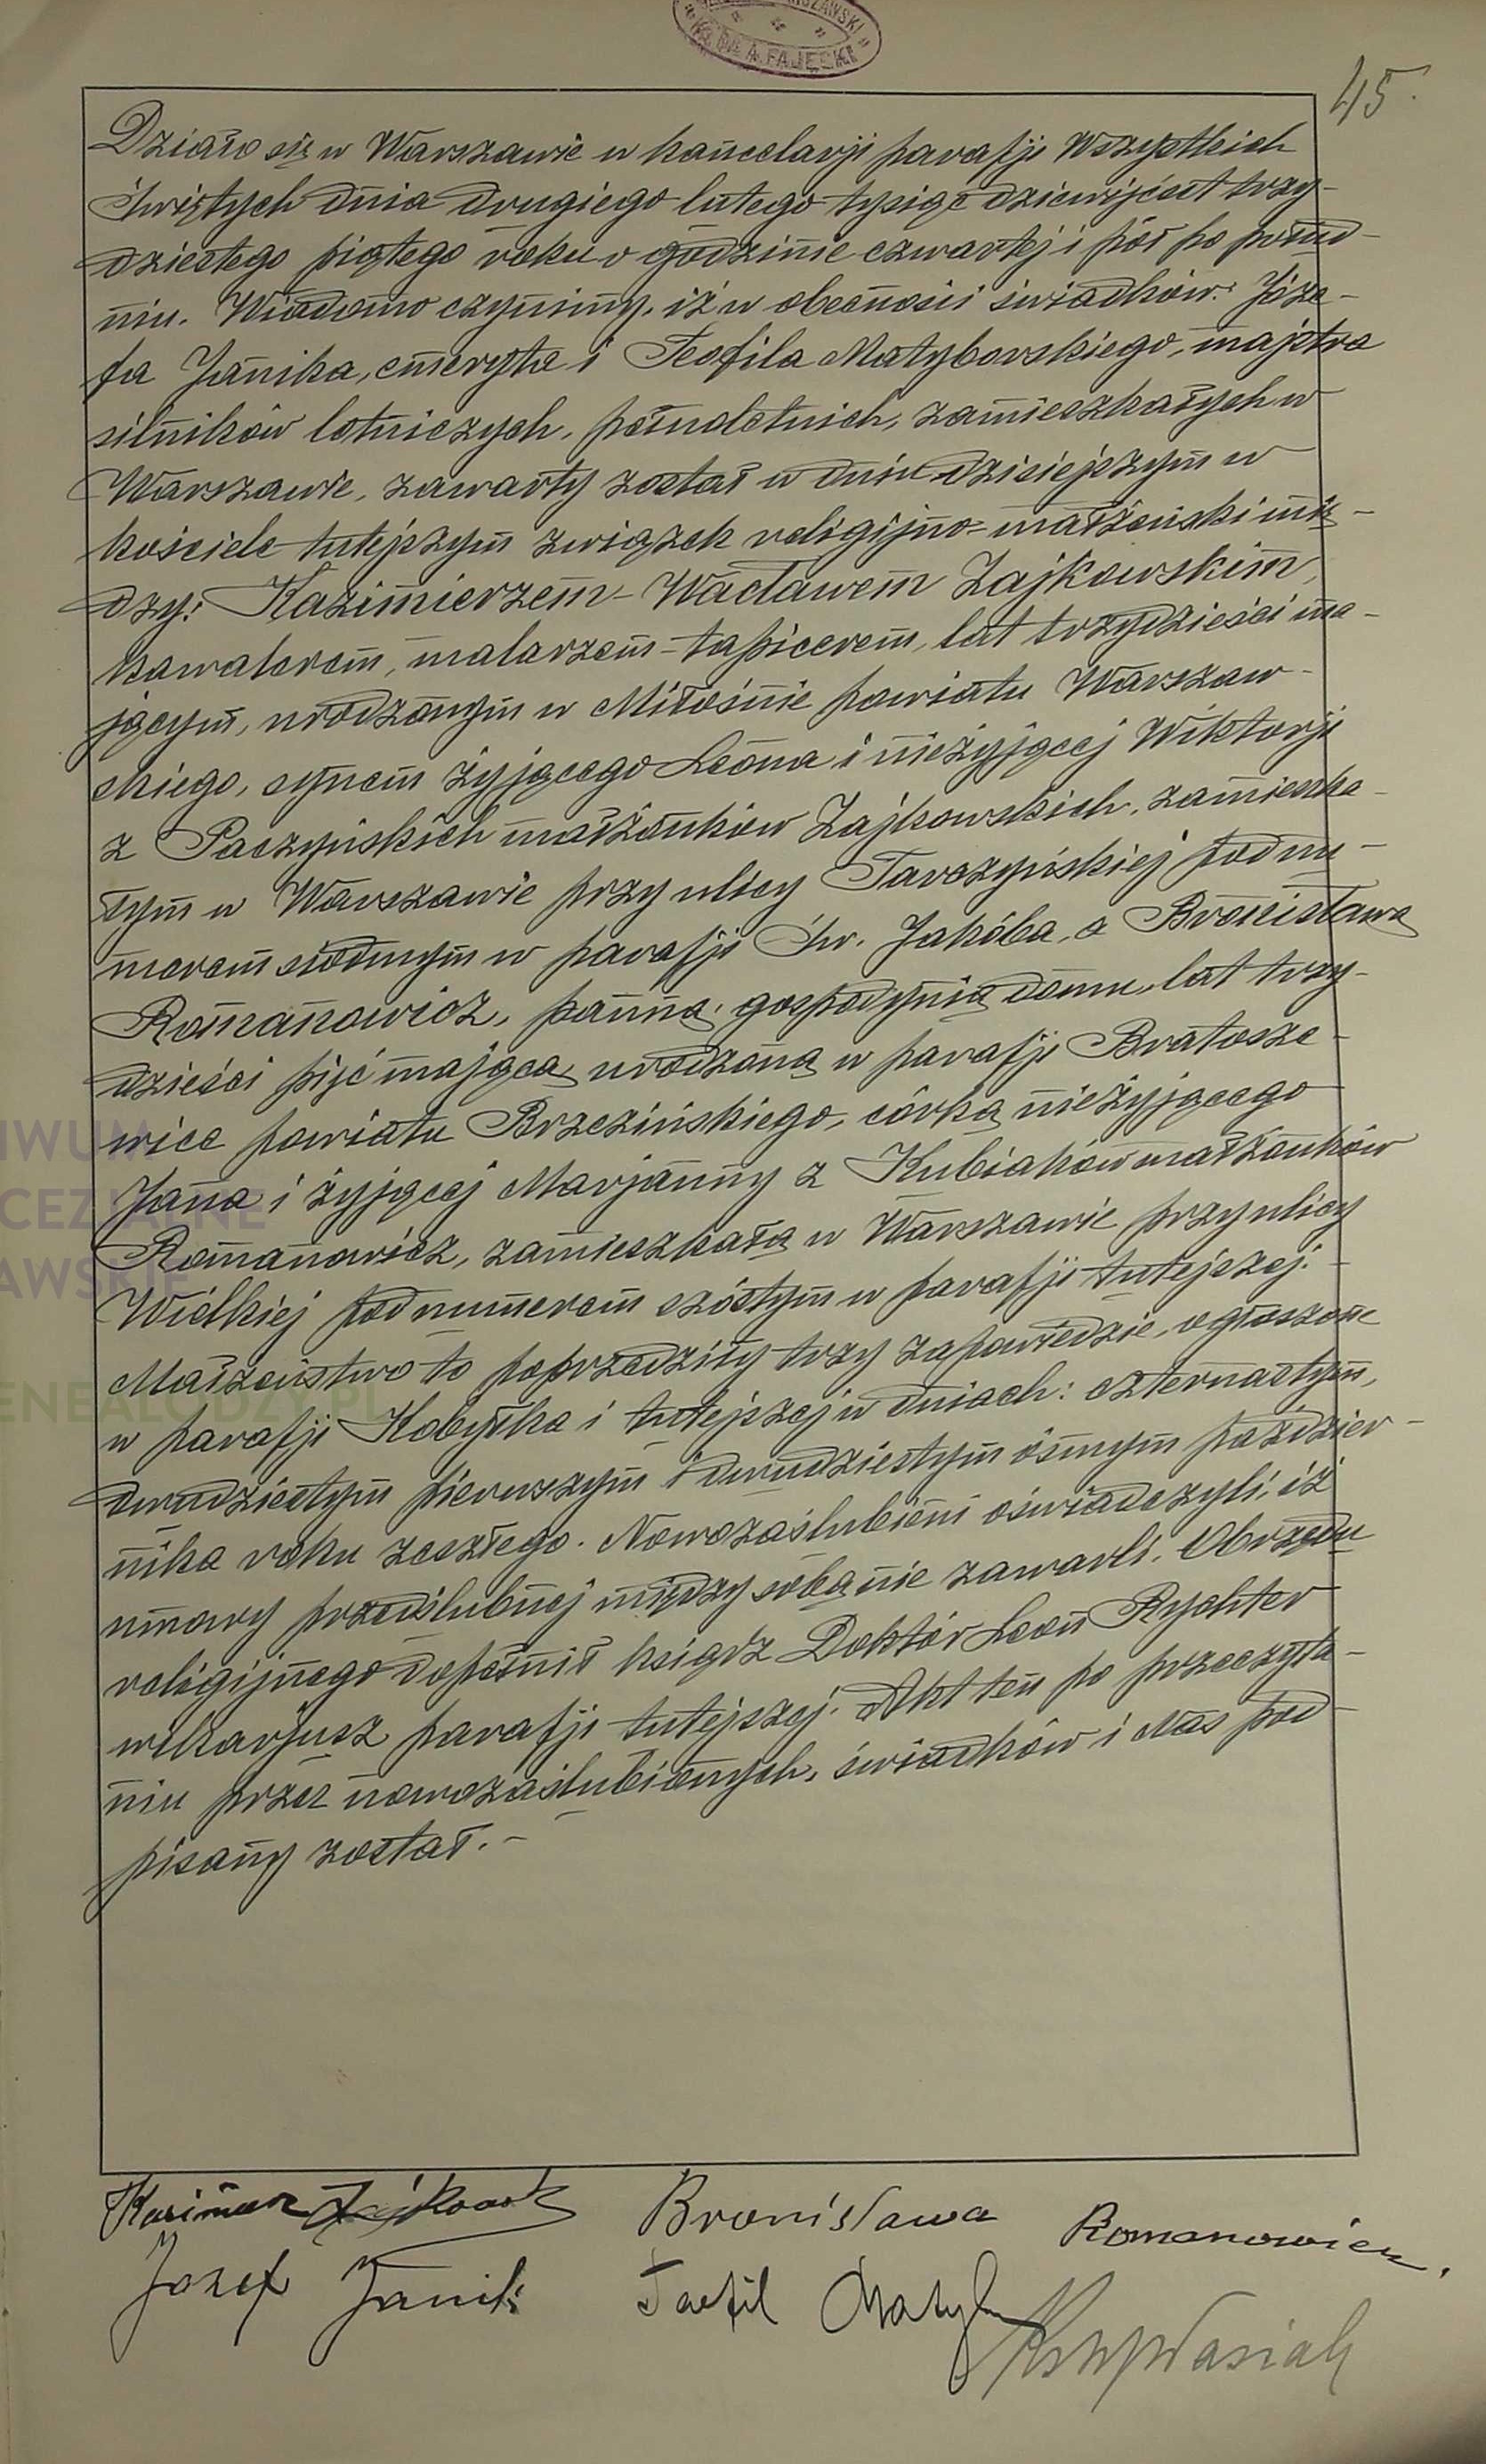 45.
Działo się w Warszawie w kancelarji parafji Wszystkich
Świętych dnia drugiego lutego tysiąc dziewięćset trzy-
dziestego piątego roku o godzinie czwartej i pół po połud-
niu. Wiadomo czynimy, iż w obecności świadków: Józe-
fa Janika, emeryta i Teofila Matyborskiego, majstra
silników lotniczych, pełnoletnich, zamieszkałych w
Warszawie, zawarty został w dniu dzisiejszym w
kościele tutejszym związek religijno-małżeński mię-
dzy: Kazimierzem-Wacławem Zajkowskim,
kawalerem, malarzem-tapicerem, lat trzydzieści ma-
jącym, urodzonym w Miłośnie powiatu Warszaw-
skiego, synem żyjącego Leona i nieżyjącej Wiktorji
z Paczyńskich małżonków Zajkowskich, zamieszka-
łym w Warszawie przy ulicy Tarczyńskiej pod nu-
merem siódmym w parafji Św. Jakóba, a Bronisławą
Romanowicz, panną, gospodynią domu, lat trzy-
dzieści pięć mającą, urodzoną w parafji Bratosze-
wice powiatu Brzezińskiego, córką nieżyjącego
Jana i żyjącej Marjanny z Kubiaków małżonków
Romanowicz, zamieszkałą w Warszawie przy ulicy
Wielkiej pod numerem szóstym w parafji tutejszej.
Małżeństwo to poprzedziły trzy zapowiedzie, ogłoszone
w parafji Kobyłka i tutejszej w dniach: czternastym,
dwudziestym pierwszym i dwudziestym ósmym paździer-
nika roku zeszłego. Nowozaślubieni oświadczyli, iż
umowy przedślubnej między sobą nie zawarli. Obrzędu
religijnego dopełnił ksiądz Doktór Leon Rychter
wikarjusz parafji tutejszej. Akt ten po przeczyta-
niu przez nowozaślubionych, świadków i Nas pod-
pisany został.-
Kazimierz Zajkowski Bronisława Romanowicz.
Jozef Janik Teofil